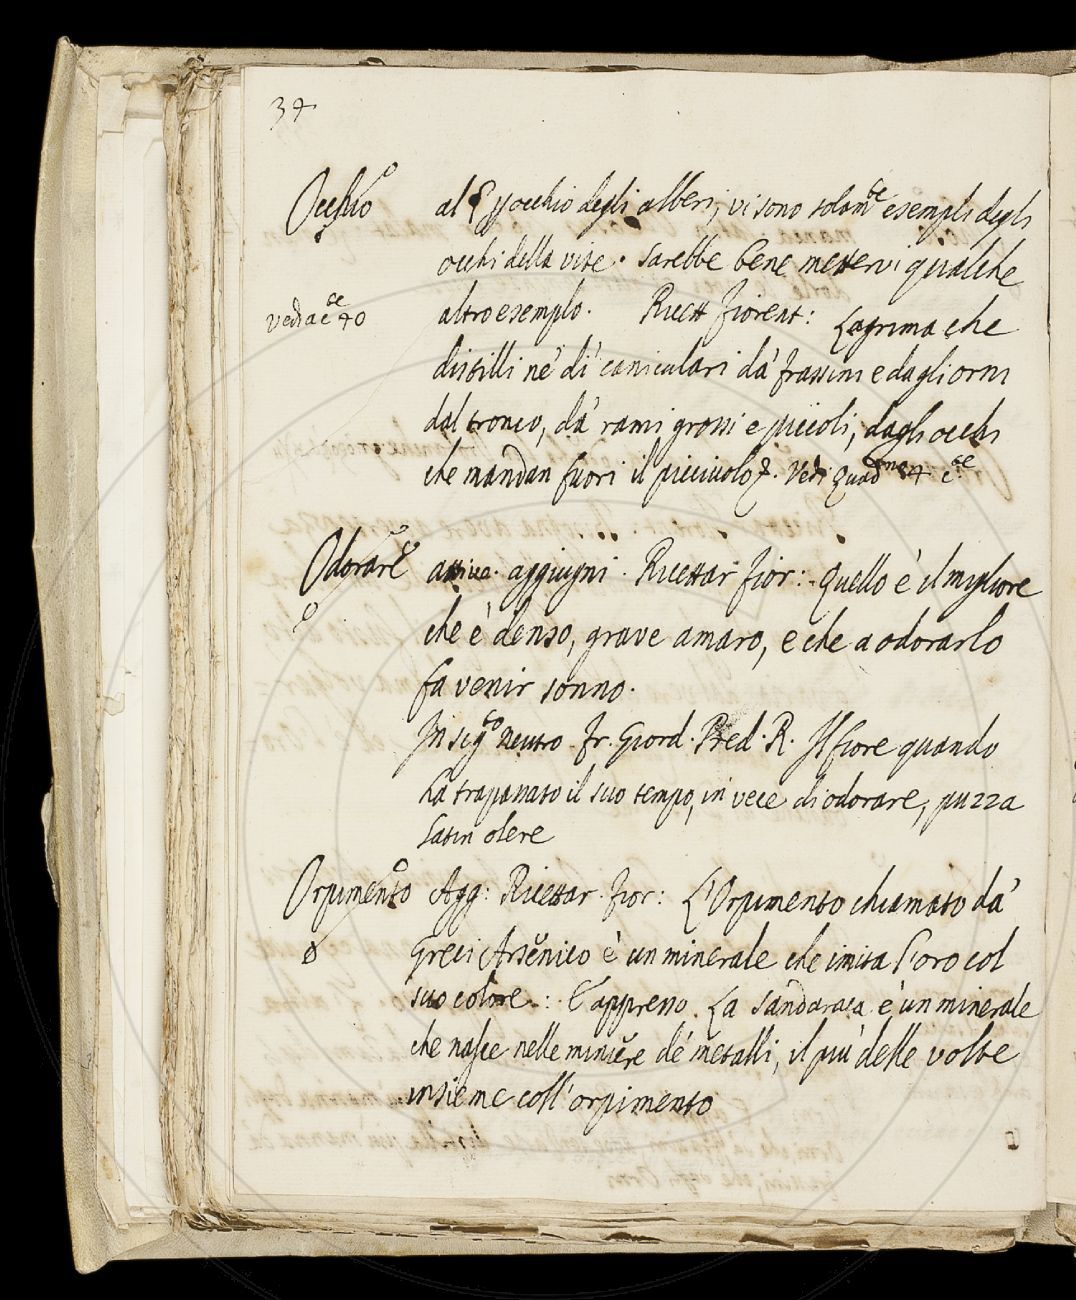 34
Occhio al § occhio degli alberi, vi sono solam.te esempli degli
occhi della vite. Sarebbe bene mettervi qualche
vedi a c.te 40 altro esempio. Ricett fiorent: Lagrima che
distilli ne' dì caniculari da' frassini e dagli orni
dal tronco, da' rami grossi e piccoli, dagli occhi
che mandan fuori il picciuolo &. Vedi quad 4 c.te
Odorare attivo. aggiugni. Ricettar fior: Quello è il migliore
che è denso, grave amaro, e che a odorarlo
fa venir sonno.
In sig.to neutro. fr. Giord. Pred. R. Il fiore quando
ha trapassato il suo tempo, in vece di odorare, puzza
Latin olere
Orpimento Agg: Ricettar. fior: L'Orpimento chiamato da'
Greci Arsenico è un minerale che imita l'oro col
suo colore: E appresso. La Sandaraca è un minerale
che nasce nelle miniere de' metalli, il più delle volte
insieme coll'orpimento